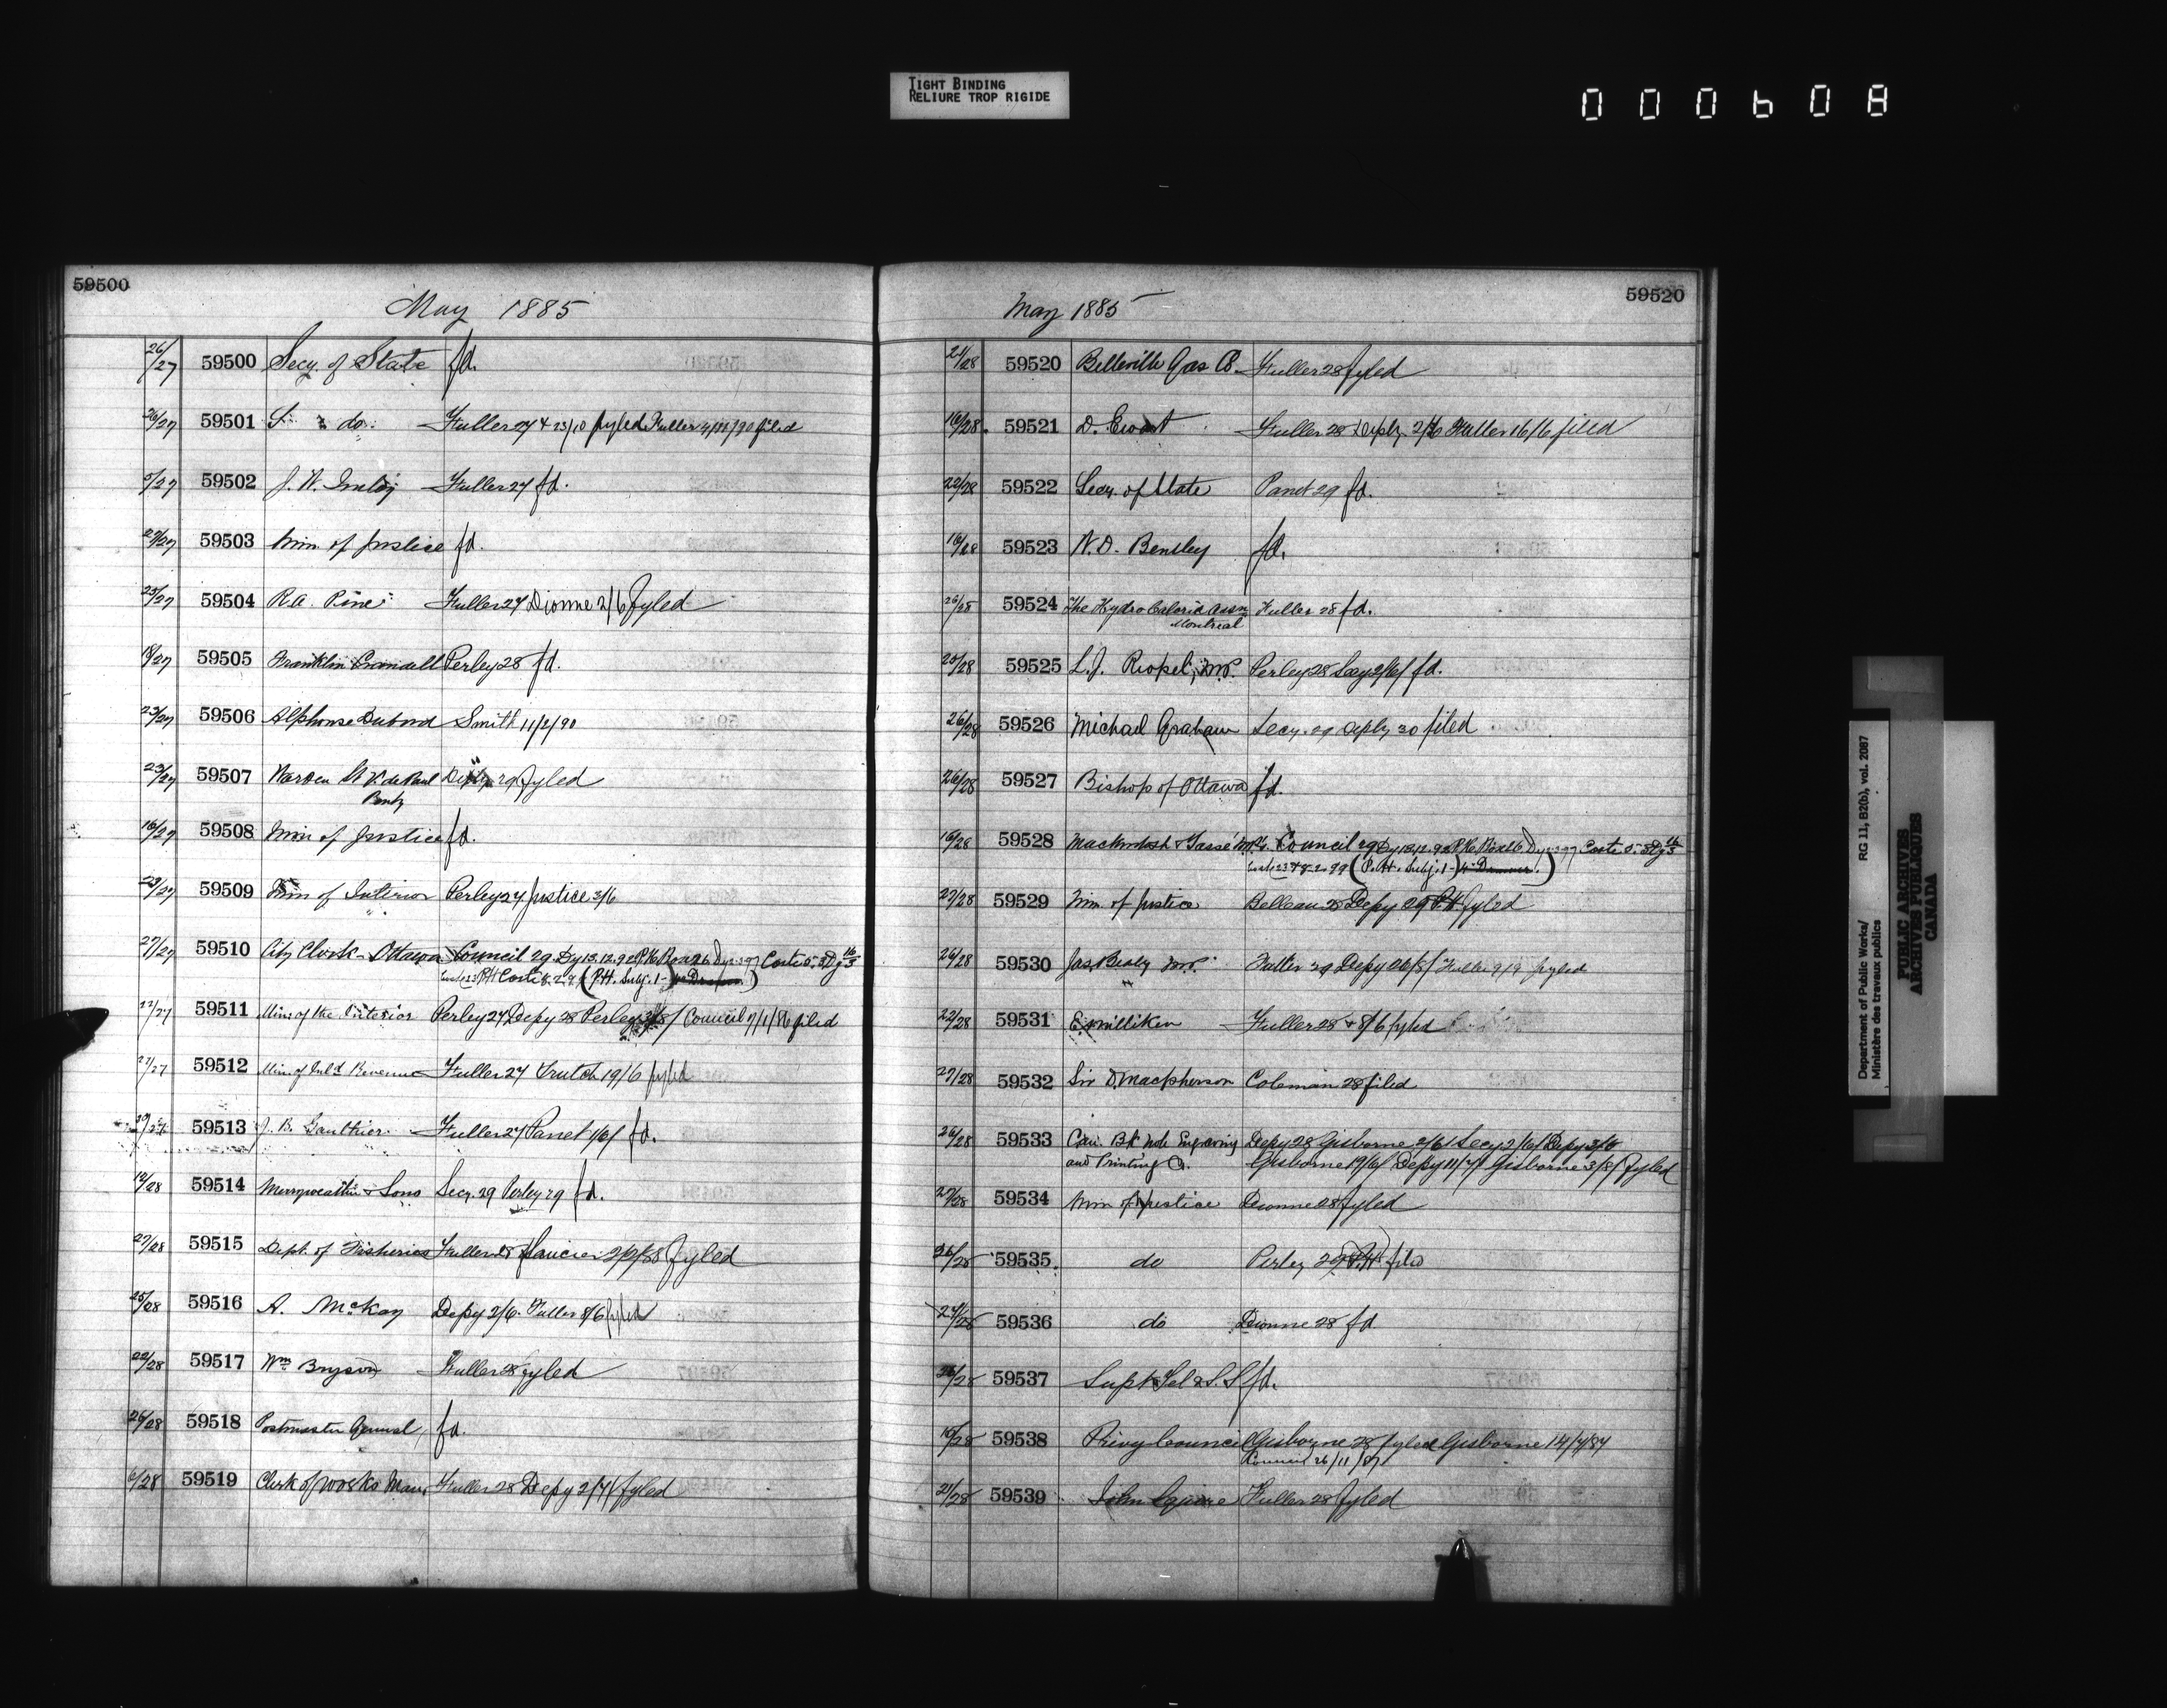 TIGHT BINDING
RELIURE TROP RIGIDE
000608
59500
May 1885
26/27 59500 Secy. of State fd.
26/27 59501 do. Fuller 27 & 23/10 fyled Fuller filed
5/27 59502 J. W. Fuller 27 fd.
59503 Min. of Justice fd.
23/27 59504 R. A. Pine Fuller 27 Dionne 2/6 fyled
18/27 59505 Franklin Crandall Perley 28 fd.
23/27 59506 Alphonse Dubord Smith 11/2/90
23/27 59507 Warden St. V. de Paul Depy 29 fyled
Penty
16/27 59508 Min. of Justice fd.
23/27 59509 Min of Interior Perley 27 Justice 3/6
27/27 59510 City Clerk - Ottawa Council 29 Dy 13.12.92 Coste
Coste 8.2.97 (P.H. Subj. 1-)
22/27 59511 Min. of the Interior Perley 27 Depy 28 Perley Council 7/1/86 filed
21/27 59512 Min. of Inld Revenue Fuller 27 Trutch 19/6 fyled
59513 J. B. Gauthier Fuller 27 Panet 1/6/ fd.
14/28 59514 Merryweather & Sons Secy. 29 Perley 29 fd.
27/28 59515 Dept. of Fisheries Fuller 28 Saucier fyled
25/28 59516 A. McKay Depy 2/6. Fuller 8/6 fyled
22/28 59517 Wm Bryson Fuller 28 fyled
26/28 59518 Postmaster General, fd.
6/28 59519 Clerk of Works Man. Fuller 28 Depy 2/7/ fyled
59520
May 1885
21/28 59520 Belleville Gas Co. Fuller 28 fyled
16/28. 59521 D. Ewart Fuller 28 Depty. 2/6 Fuller 16/6 filed
22/28 59522 Secy. of State Panet 29 fd.
16/28 59523 W. D. Bensley fd.
26/28 59524 The Hydro Caloric Assn Fuller 28 fd.
Montreal
25/28 59525 L. J. Riopel, M.P. Perley 28 Secy 2/6/ fd.
26/28 59526 Michael Graham Secy. 29 Depty 30 filed
26/28 59527 Bishop of Ottawa fd.
16/28 59528 Mackintosh & Tassé M.Ps. Council 29 Dy 13.12.92 Coste
(P.H. Subj. 1-)
27/28 59529 Min. of Justice Belleau 28 Depy 29 P.H. fyled
26/28 59530 Jas. Beaty M.P. Fuller 29 Depy 26/8/ Fuller 9/9 fyled
22/28 59531 E. Milliken Fuller 28 & 8/6 fyled
27/28 59532 Sir D. Macpherson Coleman 28 filed
26/28 59533 Can. Bk Note Engraving Depy 28 Gisborne 2/6/ Secy 2/6/ Depy 3/6
and Printing Co. Gisborne 19/6/ Depy 11/7/ Gisborne 3/8/ fyled
27/28 59534 Min of Justice Dionne 28 fyled
26/28 59535 do Perley 29 P.H. filed
27/28 59536 do Dionne 28 fd.
26/28 59537 Supt Tel & S. S. fd.
19/28 59538 Privy Council Gisborne 28 fyled Gisborne 14/7/87
Council 26/11/87
21/28 59539 John Squire Fuller 28 fyled
Department of Public Works/ RG 11, B2(b), vol. 2087
Ministère des travaux publics
PUBLIC ARCHIVES
ARCHIVES PUBLIQUES
CANADA